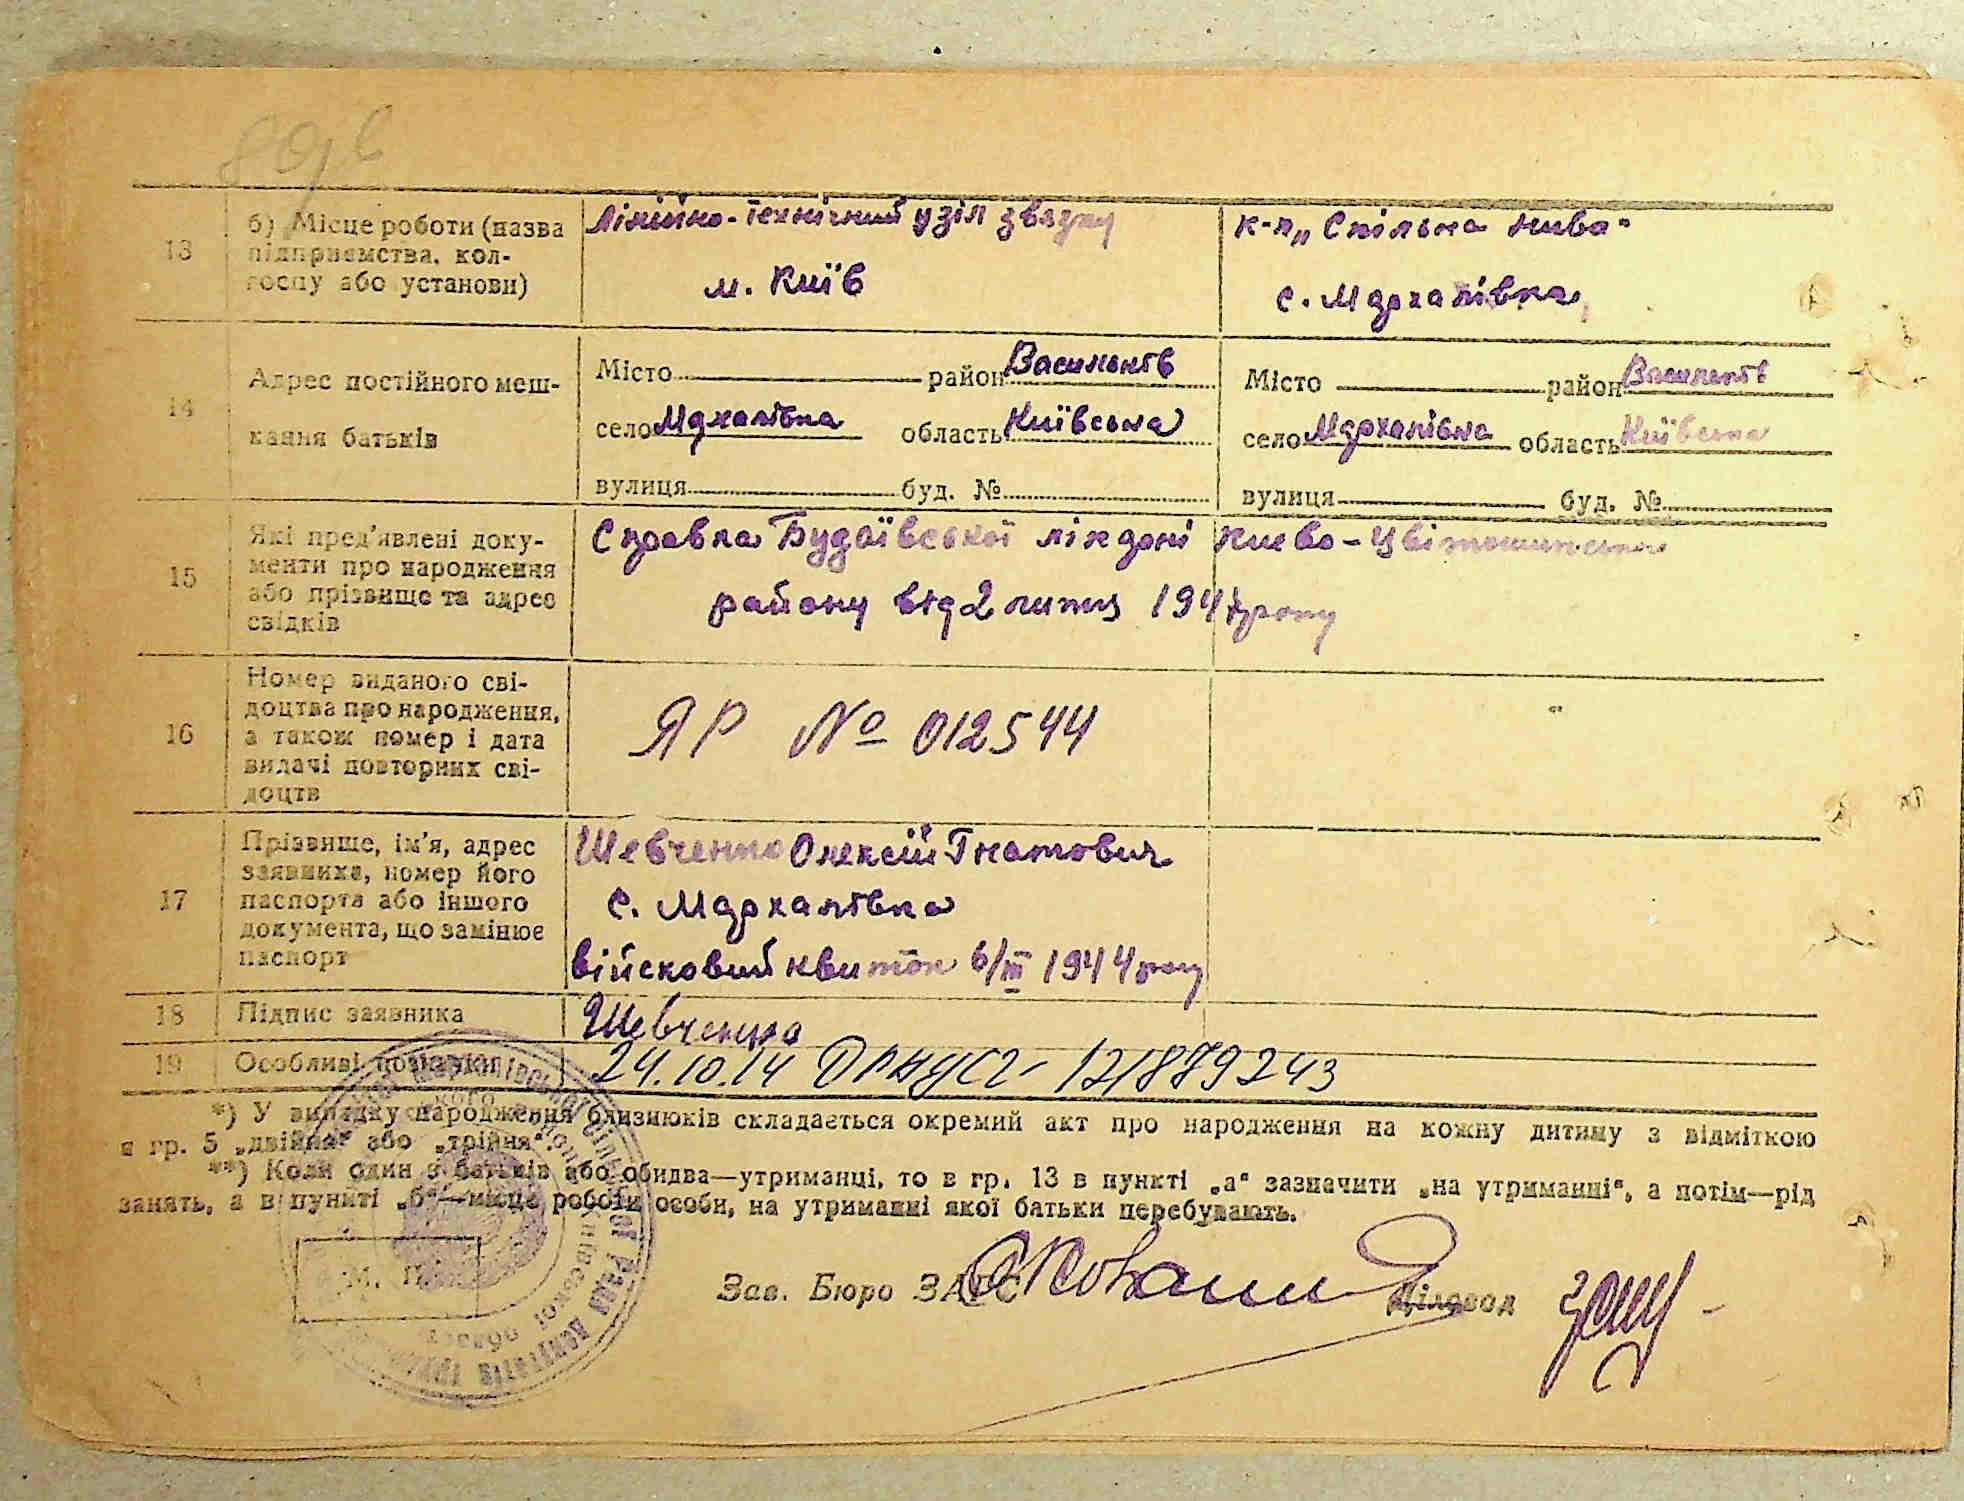 13
б) Місце роботи (назва
підприємства, кол-
госпу або установи)
Лінійно-технічний узіл звязку
м. Київ
к-п „Спільна нива“
с. Мархалівка
14
Адрес постійного меш-
кання батьків
Місто район Васильків
село Мархалівка область Київська
вулиця буд. №
Місто район Васильків
село Мархалівка область Київська
вулиця буд. №
15
Які пред'явлені доку-
менти про народження
або прізвище та адрес
свідків
Справка Будаївської лікарні Києво-
району від 2 липня 1947 року
16
Номер виданого сві-
доцтва про народження,
а також номер і дата
видачі повторних сві-
доцтв
ЯР № 012544
17
Прізвище, ім'я, адрес
заявника, номер його
паспорта або іншого
документа, що замінює
паспорт
Шевченко Олексій Гнатович
с. Мархалівка
військовий квиток 6/III 1944 року
18
Підпис заявника
Шевченко
19
Особливі помітки
24.10.14 121879243
*) У випадку народження близнюків складається окремий акт про народження на кожну дитину з відміткою
в гр. 5 „двійня“ або „трійня“.
**) Коли один з батьків або обидва—утриманці, то в гр. 13 в пункті „а“ зазначити „на утриманні“, а потім—рід
занять, а в пункті „б“—місце роботи особи, на утриманні якої батьки перебувають.
М. П.
Зав. Бюро ЗАГС
Діловод